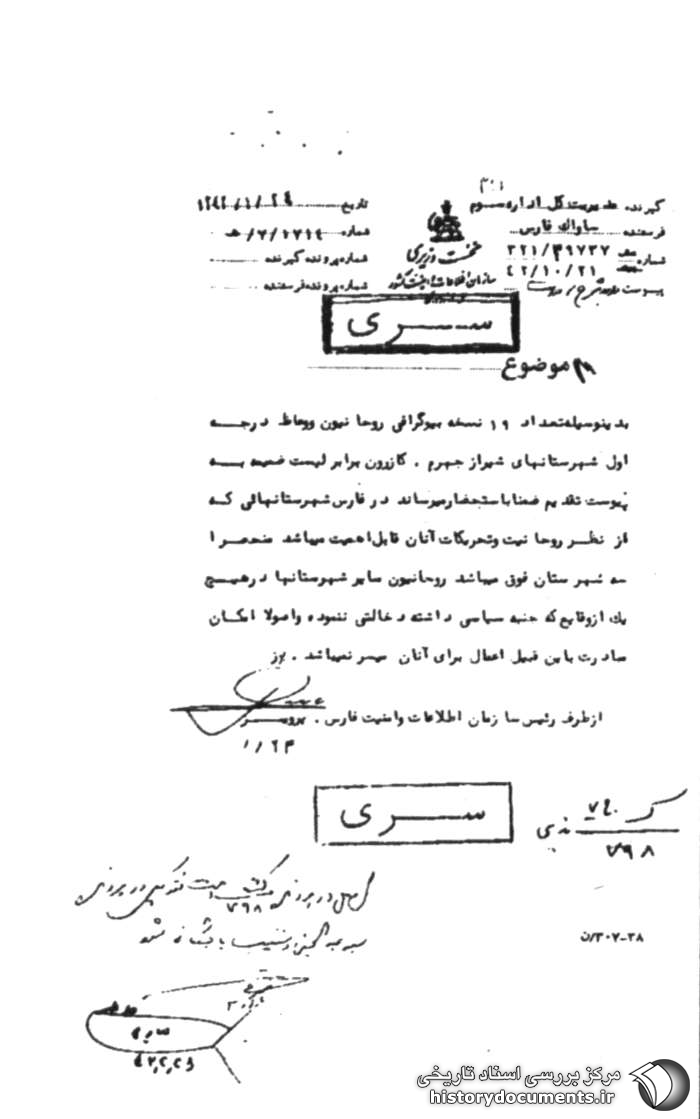 گیرنده مدیریت کل اداره سوم
فرستنده ساواک فارس
شماره ۳۲۱/۳۹۷۳۷
۴۲/۱۰/۲۱
پیوست دارد
نخست وزیری
سازمان اطلاعات و امنیت کشور
تاریخ ۱۳۴۲/۱/۲۴
شماره ۱۷۱۴/۷/هـ
شماره پرونده گیرنده
شماره پرونده فرستنده
ســری
موضوع
بدینوسیله تعداد ۱۹ نسخه بیوگرافی روحانیون ووعاظ درجه
اول شهرستانهای شیراز جهرم . کازرون برابر لیست ضمیمه به
پیوست تقدیم ضمنا باستحضار میرساند در فارس شهرستانهائی که
از نظر روحانیت وتحریکات آنان قابل اهمیت میباشد منحصرا
سه شهرستان فوق میباشد روحانیون سایر شهرستانها در هیچ
یک ازوقایع که جنبه سیاسی داشته دخالتی ننموده واصولا امکان
مبادرت باین قبیل اعمال برای آنان میسر نمیباشد .
ازطرف رئیس سازمان اطلاعات وامنیت فارس .
۱/۲۳
ســری
۷۹۸
اصل در پرونده
۷۹۸
۳۰۷-۳۸/ن
مرکز بررسی اسناد تاریخی
historydocuments.ir